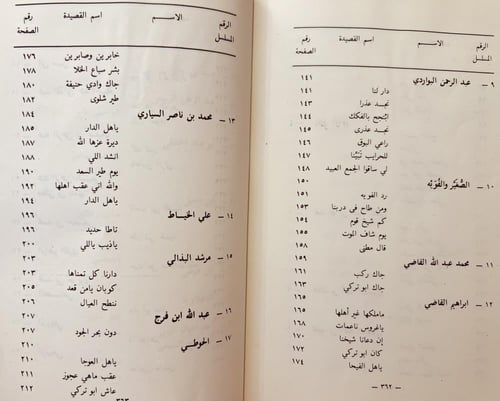 الرقم المسلسل الاســم اسم القصيدة رقم الصفحة
٩ – عبد الرحمن البواردي ١٤١
دار لنا
نجد عذرا ١٤٣
ابتجح بالفكك ١٤٤
نجد عذرى ١٤٥
راعي البوق ١٤٦
للحرايب تبينا ١٤٧
لي ساقوا الجمع العبيد ١٤٨
١٠ – الصُّغَيَّر والفُوَيَّه ١٥٠
رد الفويه ١٥١
ومن طاح في دربنا ١٥٣
كم شيخ قوم ١٥٤
يوم شاف الموت ١٥٥
قال مطنى ١٥٨
١١ – محمد عبد الله القاضي ١٥٩
جاك ركب ١٦١
جاك ابو تركي ١٦٣
١٢ – ابراهيم القاضي ١٦٥
ماملكها غير أهلها ١٦٥
ياغروس ناعمات ١٦٨
إن دعانا شيخنا ١٧٠
كان ابو تركي ١٧٢
ياهل الفيحا ١٧٤
– ٣٦٢ –
الرقم المسلسل الاســم اسم القصيدة رقم الصفحة
خابرين وصابرين ١٧٦
بشر سباع الخلا ١٧٨
جاك وادي حنيفة ١٨٠
طير شلوى ١٨٢
١٣ – محمد بن ناصر السياري ١٨٤
ياهل الدار ١٨٥
ديرة عزها الله ١٨٧
انشد اللي ١٨٨
يوم طير السعد ١٩٠
والله اني عقب اهلها ١٩٢
ياهل الدار ١٩٤
١٤ – علي الخيــاط ١٩٦
تاطا حديد ١٩٦
ياذيب ياللي ٢٠٠
١٥ – مرشد البذالي ٢٠٣
دارنا كل تمناها ٢٠٣
كوبان يامن قعد ٢٠٥
ننطح العيال ٢٠٦
١٦ – عبد الله ابن فرج ٢٠٧
دون بحر الجود ٢٠٧
١٧ – الحوطــي ٢١٠
ياهل العوجا ٢١٠
عقب ماهي عجوز ٢١١
عاش ابو تركي ٢١٢
٣٦٣